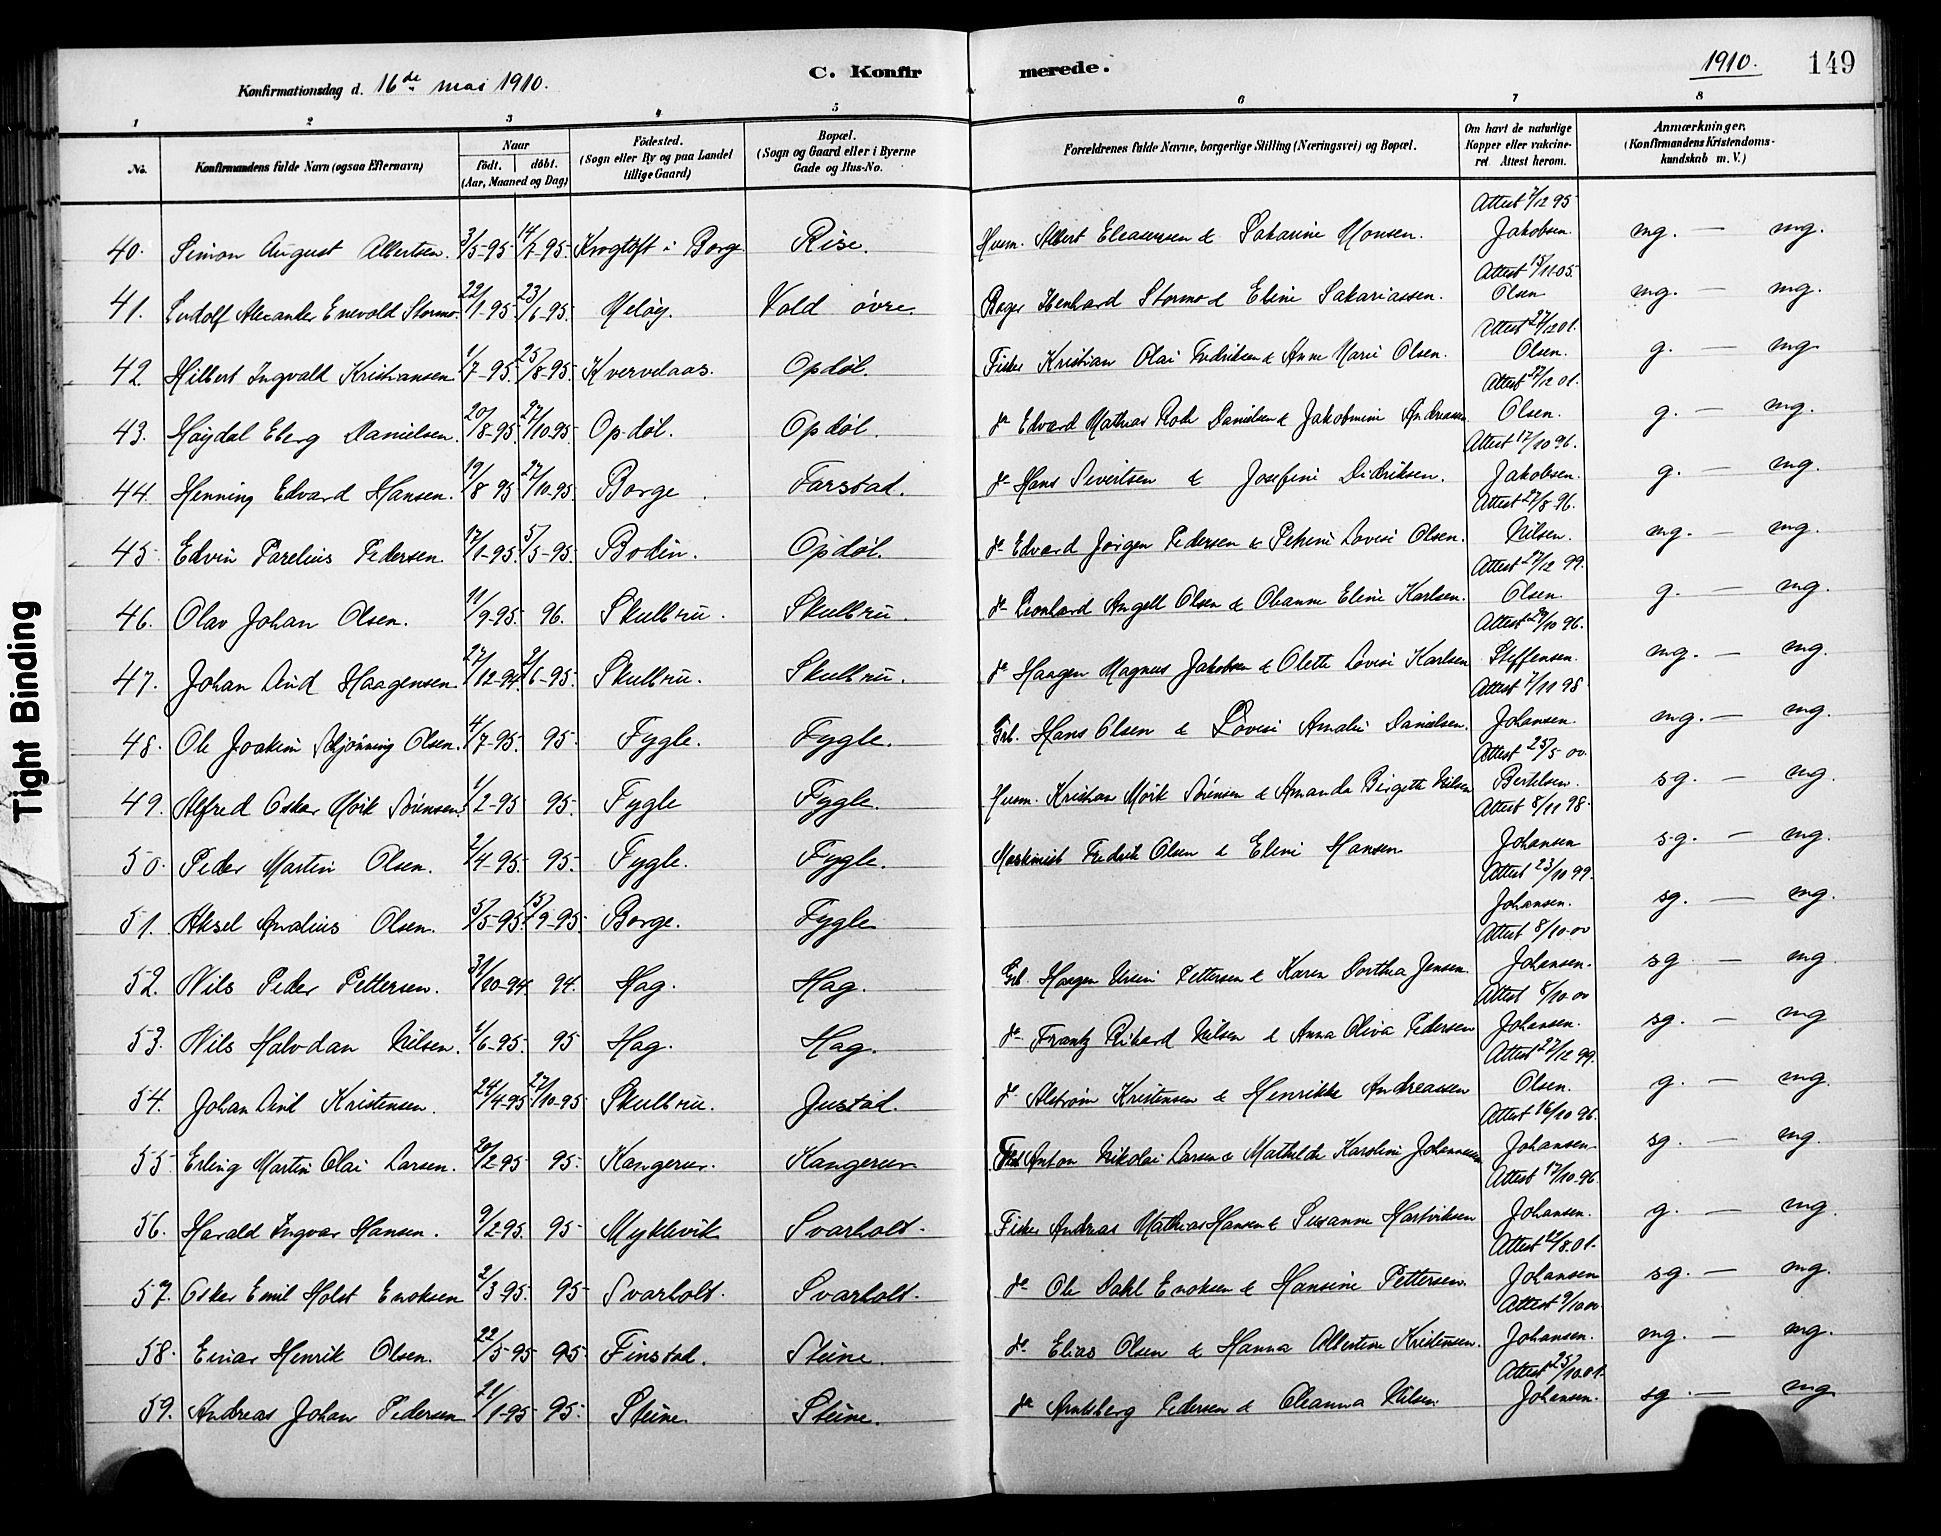 Konfirmationsdag d. 16de mai 1910.
C. Konfir merede.
1910. 149
1 2 3 4 5 6 7 8
No.
Konfirmandens fulde Navn (ogsaa Efternavn)
Naar
födt. döbt.
(Aar, Maaned og Dag)
Födested.
(Sogn eller By og paa Landet
tillige Gaard)
Bopæl.
(Sogn og Gaard eller i Byerne
Gade og Hus-No.
Forældrenes fulde Navne, borgerlige Stilling (Næringsvei) og Bopæl.
Om havt de naturlige
Kopper eller vakcine-
ret. Attest herom.
Anmærkninger.
(Konfirmandens Kristendoms-
kundskab m. V.)
Attest 7/12 95
40. Simon August Albertsen. 3/5-95. 14/7-95. Krogtoft i Borg Rise. Husm. Albert Eleasersen & Sakarine Monsen. Jakobsen. mg. — mg.
Attest 15/11 05.
41. Ludolf Alexander Enevold Stormo. 22/1-95. 23/6-95. Meløy. Vold øvre. Bager Henhard Stormo & Eline Sakariassen. Olsen mg. — mg.
Attest 27/12 01.
42. Hilbert Ingvald Kristiansen 1/7-95. 25/8-95. Kvervelaas. Opdøl. Fisker Kristian Olai Fredriksen & Anne Marie Olsen. Olsen. g. — mg
Attest 27/12 01.
43. Høydal Eberg Danielsen. 20/8-95. 27/10-95 Opdøl. Opdøl. do Edvard Mathias Rode Danielsen & Jakobmine Andreassen Olsen. g. — mg.
Attest 17/10 96.
44. Henning Edvard Hansen. 19/8 95 27/10-95 Borge. Farstad. do Hans Sivertsen & Josefine Didriksen. Jakobsen. g. — mg.
Attest 27/8 96.
45. Edvin Parelius Pedersen. 17/1-95. 5/5-95. Bodin. Opdøl. do Edvard Jørgen Pedersen & Petrine Lovise Olsen. Nilsen. mg. — mg.
Attest 27/12 99.
46. Olav Johan Olsen. 11/9-95. 96. Skulbru. Skulbru. do Leonhard Angell Olsen & Oleanne Eline Karlsen. Olsen. g. — mg.
Attest 29/10 96.
47. Johan Arnd Haagensen. 27/12-94. 2/6-95. Skulbru. Skulbru. do Haagen Magnus Jakobsen & Olette Lovise Karlsen Steffensen. mg. — mg.
Attest 7/11 98.
48. Ole Joakim Stjønning Olsen. 4/7-95. 95. Fygle. Fygle. Grb. Hans Olsen & Lovise Amalie Danielsen. Johansen. mg. — mg.
Attest 25/5 00
49. Alfred Oskar Mørk Sørensen. 1/2-95 95. Fygle Fygle. Husm. Kristian Mørk Sørensen & Amanda Birgette Nilsen Bertelsen. sg. — mg.
Attest 8/11 98.
50. Peder Martin Olsen. 2/4-95. 95. Fygle. Fygle. Maskinist Fredrik Olsen & Eline Hansen Johansen sg. — mg.
Attest 23/10 99.
51. Aksel Analius Olsen. 5/5-95. 15/9-95. Borge. Fygle Johansen. sg. — mg.
Attest 8/10-00
52. Nils Peder Pettersen. 31/10-94. 94. Hag. Hag. Grb. Haagen Ursin Pettersen & Karen Dorthea Jensen. Johansen. sg — mg.
Attest 8/10 00
53. Nils Halvdan Nilsen. 1/6-95. 95 Hag. Hag. do Frantz Rikard Nilsen & Anna Oliva Pedersen Johansen. sg. — mg
Attest 27/12 99.
54. Johan Arnt Kristensen. 24/4-95 27/10-95 Skulbru. Justad. do Alstrøm Kristensen & Henrikke Andreassen Olsen. g. — mg.
Attest 16/10 96.
55. Erling Martin Olai Larsen. 20/2-95 95. Kangerur. Kangerur Anton Nikolai Larsen & Mathilde Karoline Johannessen Johansen. sg. — mg.
Attest 17/10-96.
56. Harald Ingvar Hansen. 9/2-95. 95 Myklevik Svarholt. Fisker Andreas Mathias Hansen & Susanne Hartviksen Johansen. g. — mg.
Attest 12/8.01.
57. Oskar Emil Holst Enoksen 2/3-95. 95 Svarholt. Svarholt. do Ole Dahl Enoksen & Hansine Pettersen. Johansen sg. — mg.
Attest 9/10 00
58. Einar Henrik Olsen. 22/5-95 95. Finstad. Steine. do Elias Olsen & Hanna Albertine Kristensen. Johansen. mg. — mg.
Attest 25/10.01.
59. Andreas Johan Pedersen 21/1-95 95. Steine. Steine. do Arntsberg Pedersen & Oleanna Nilsen. Johansen. sg. — mg
Tight Binding